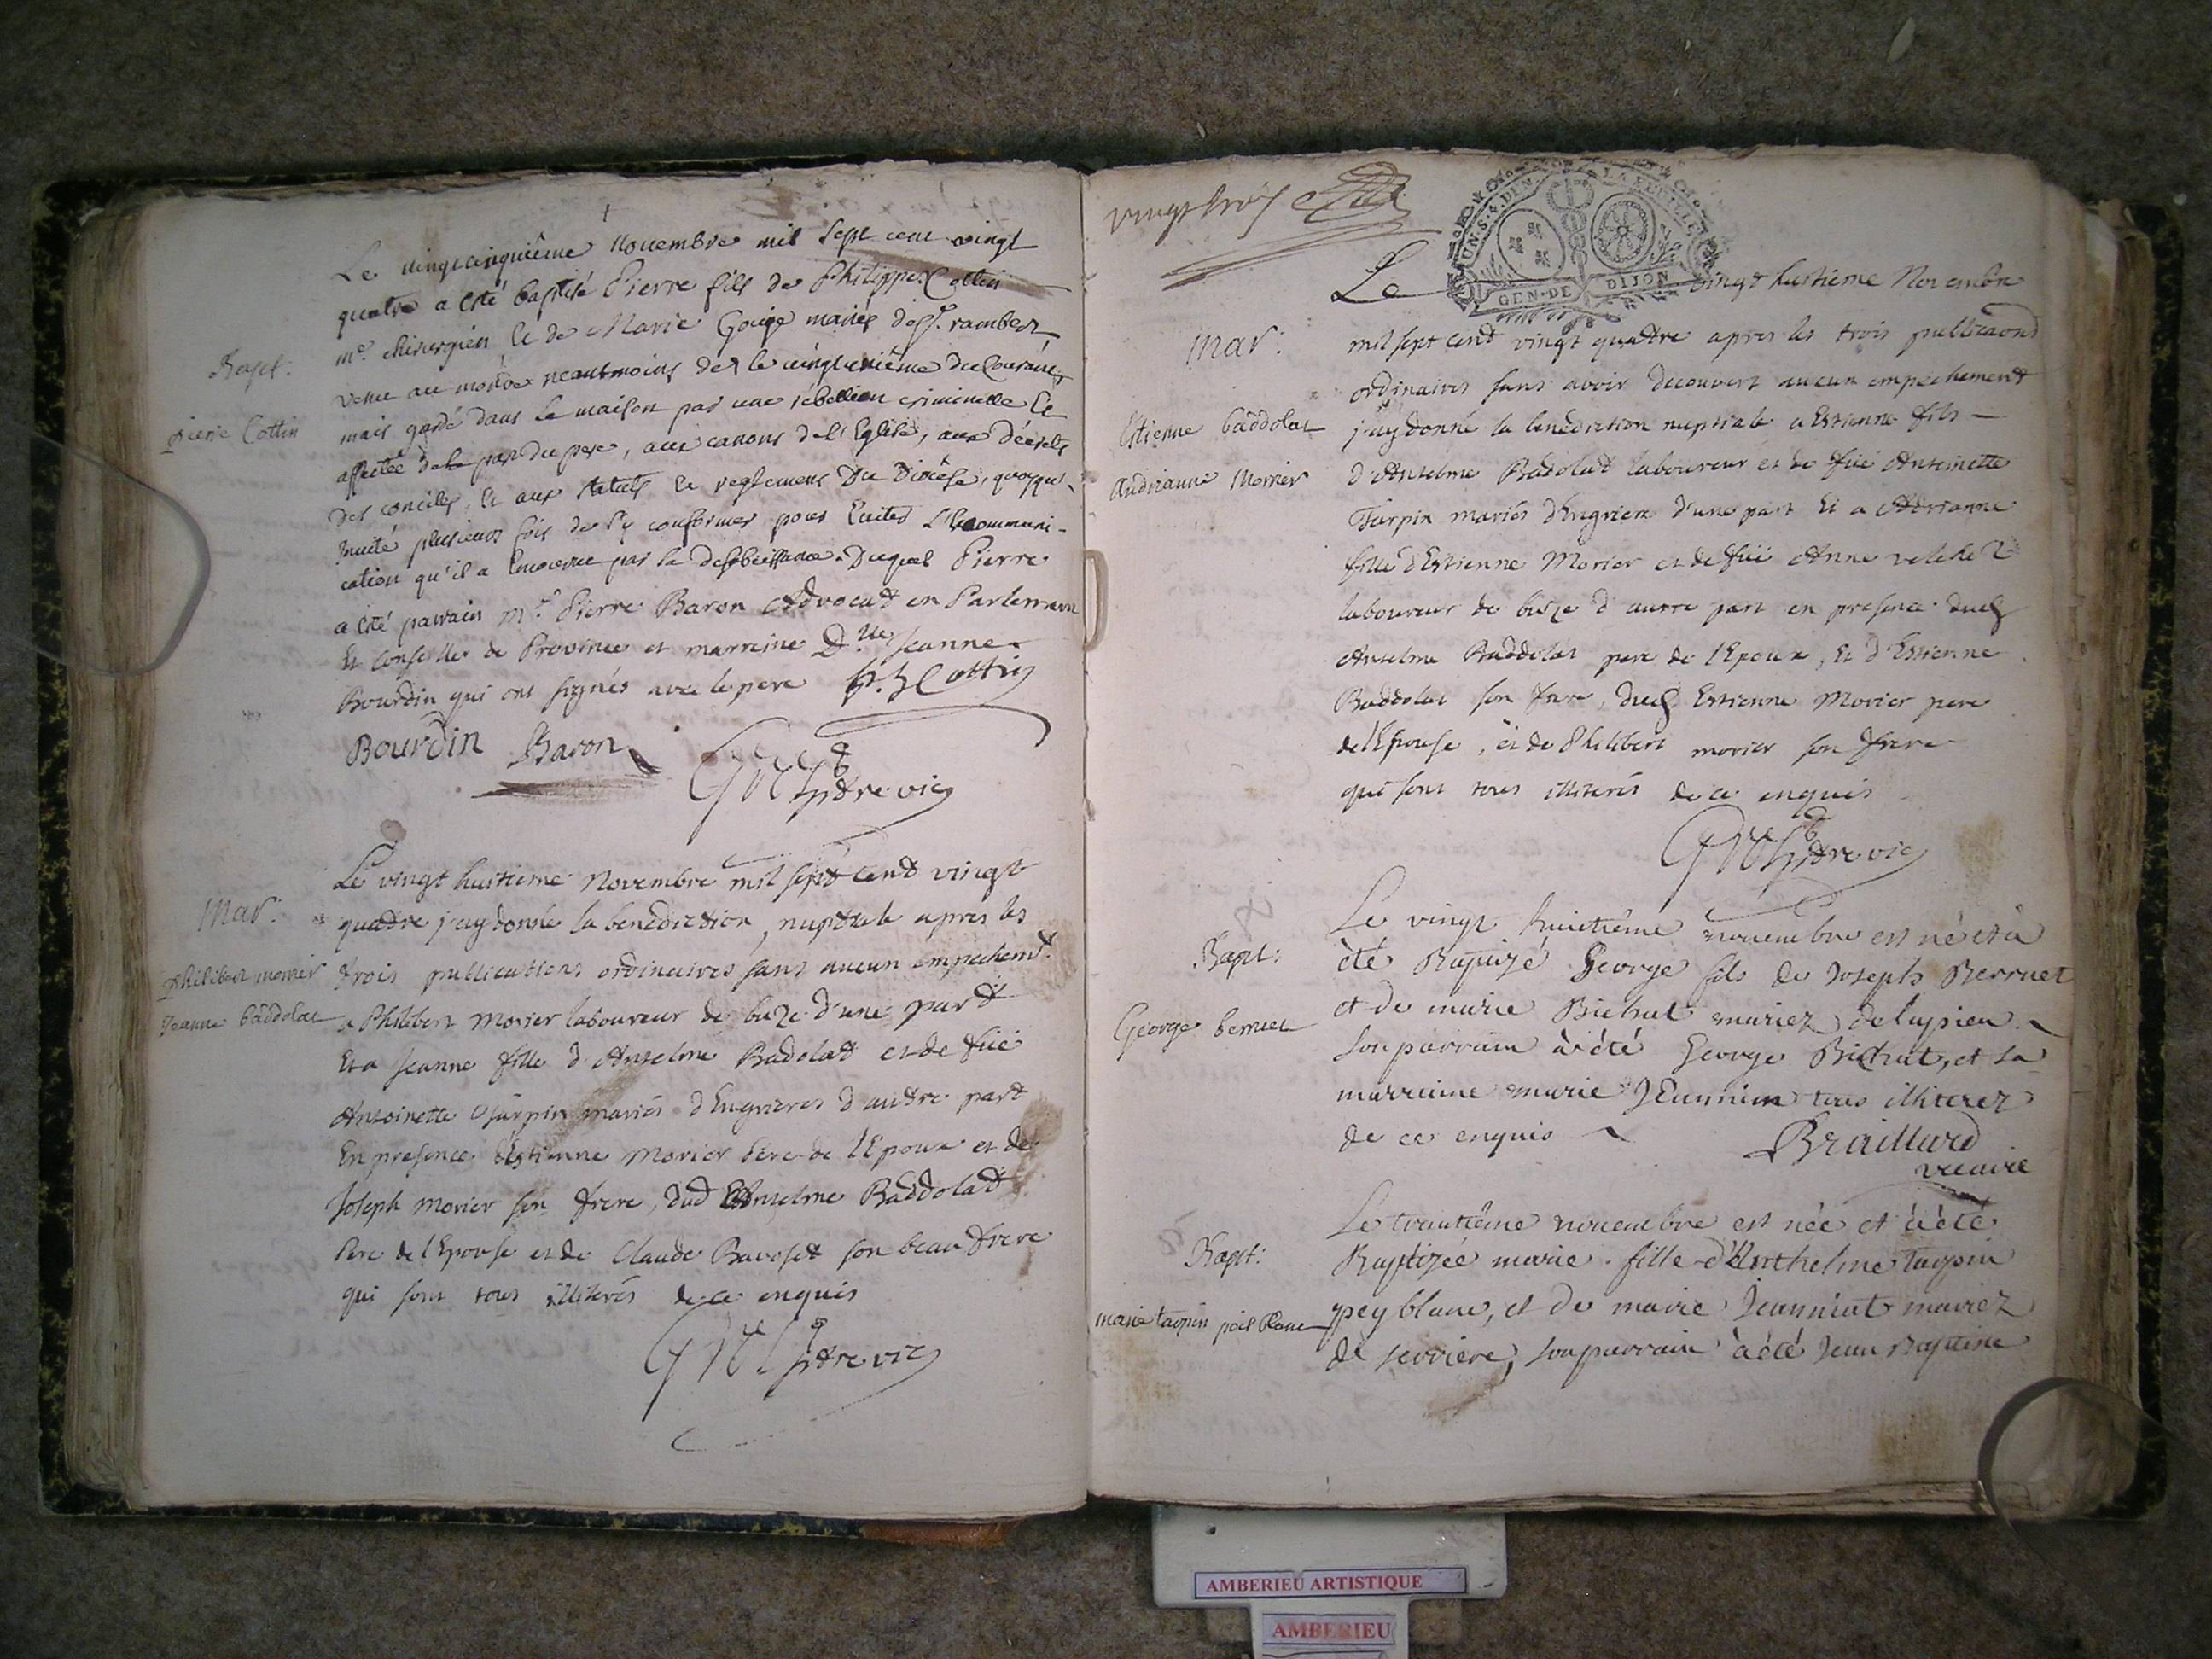 Le vingt cinquiême novembre mil sept cent vingt
quatre a été baptisé Pierre fils de Philippe Cottin
me. chirurgien et de Marie Gouge mariés de St. rambert
Bapt:
venu au monde neantmoins des le vingtuniême du Courant,
mais gardé dans la maison par une rébellion criminelle et
pierre Cottin
affectée de la part du pere, aux canons de l'Eglise, aux décrets
des conciles, et aux statuts et reglemens Du Diocêse, quoyqu'
invité plusieurs fois de s'y conformer pour Eviter l'Excommuni-
cation qu'il a Encourue par sa desobeissance. Duquel Pierre
a été parrain mr. Pierre Baron Advocat en Parlement
Et conseiller de Province et marreine Dlle Jeanne
Bourdin qui ont signés avec le pere Cottin
Bourdin Baron
ptre vic
Le vingt huitieme Novembre mil sept cent vingt
Mar:
quatre j'ay donné la benediction nuptiale apres les
philibert morier
trois publications ordinaires sans aucun empechemt.
Jeanne baddolat
a Philibert Morier laboureur de buze d'une part
Et a Jeanne fille d'Anselme Badolat et de füe
Antoinette Turpin mariés d'Engrieres d'autre part
En presence d'Estienne Morier Pere de l'Epoux et de
Joseph Morier son frere, dud Anselme Baddolat
Pere de l'Epouse et de Claude Bavoset son beau frere
qui sont tous illiterés de ce enquis
ptre vic
vingt trois
AUN.S.4.DEN. LA FEUILLE
GEN.DE DIJON
Le vingt huitieme Novembre
Mar:
mil sept cent vingt quatre apres les trois publicaons
ordinaires sans avoir decouvert aucun empechement
Estienne baddolat
j'ay donné la benediction nuptiale a Estienne fils
Andrianne Morier
d'Anselme Badolat laboureur et de füe Antoinette
Turpin mariés d'Engriere d'une part Et a Adrianne
fille d'Estienne Morier et de füe Anne
laboureur de buze d'autre part en presence dud
Anselme Baddolat pere de l'Epoux, Et d'Estienne
Baddolat son frere, dud Estienne Morier pere
de l'Epouse, et de Philibert morier son frere
qui sont tous illiterés de ce enquis
ptre vic
Le vingt huictiême novembre est né et à
Bapt:
été Baptizé George fils de Joseph Berruet
et de marie Bichat mariez de lupieu
George berruet
son parrain à été George Bichat, et sa
marraine marie Jeannin tous illiterez
de ce enquis
Braillard
vicaire
Le trantiême novembre est née et à été
Bapt:
Baptizée marie fille d'Anthelme taspin
marie taspin peis blanc
pey blanc, et de marie Jeanniat mariez
de serriere, son parrain à été Jean Baptiste
AMBERIEU ARTISTIQUE
AMBERIEU